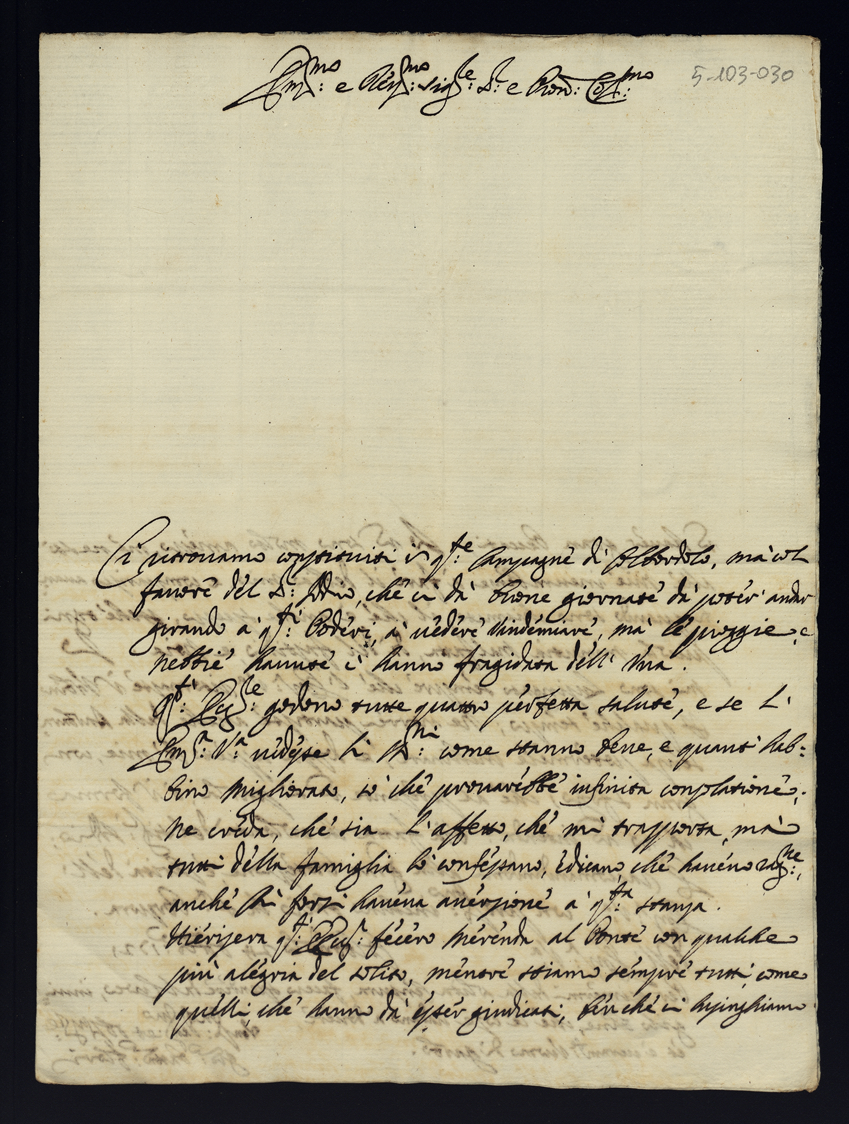 Em.mo e Rev.mo Sig.re S.r e Pron: Col.mo
5-103-030
Ci ritroviamo costituiti in q.te Campagne di Colbordolo, mà col
favore del S: Iddio, che ci dà buone giornate dà poter' andar
girando à q.ti Poderi, à vedere vindemiare, mà le pioggie, e
nebbie havute ci hanno fragidata dell' Uva.
godono tutte quattro perfetta salute, e se l'
Em.a V.a vedesse li come stanno bene, e quanto hab=
bino migliorato, sò che provarebbe infinita consolatione,
ne creda, che sia l'affetto, che mi trapporta, mà
tutti della famiglia lo confessano, e dicano, che haveno rag.ne,
anche chi forsi haveva aversione à q.ta stanza.
Hierisera q.te fecero merenda al Ponte con qualche
più alegria del solito, mentre stiamo sempre tutti, come
quelli, che hanno dà esser giudicati, benche ci lusinghiamo